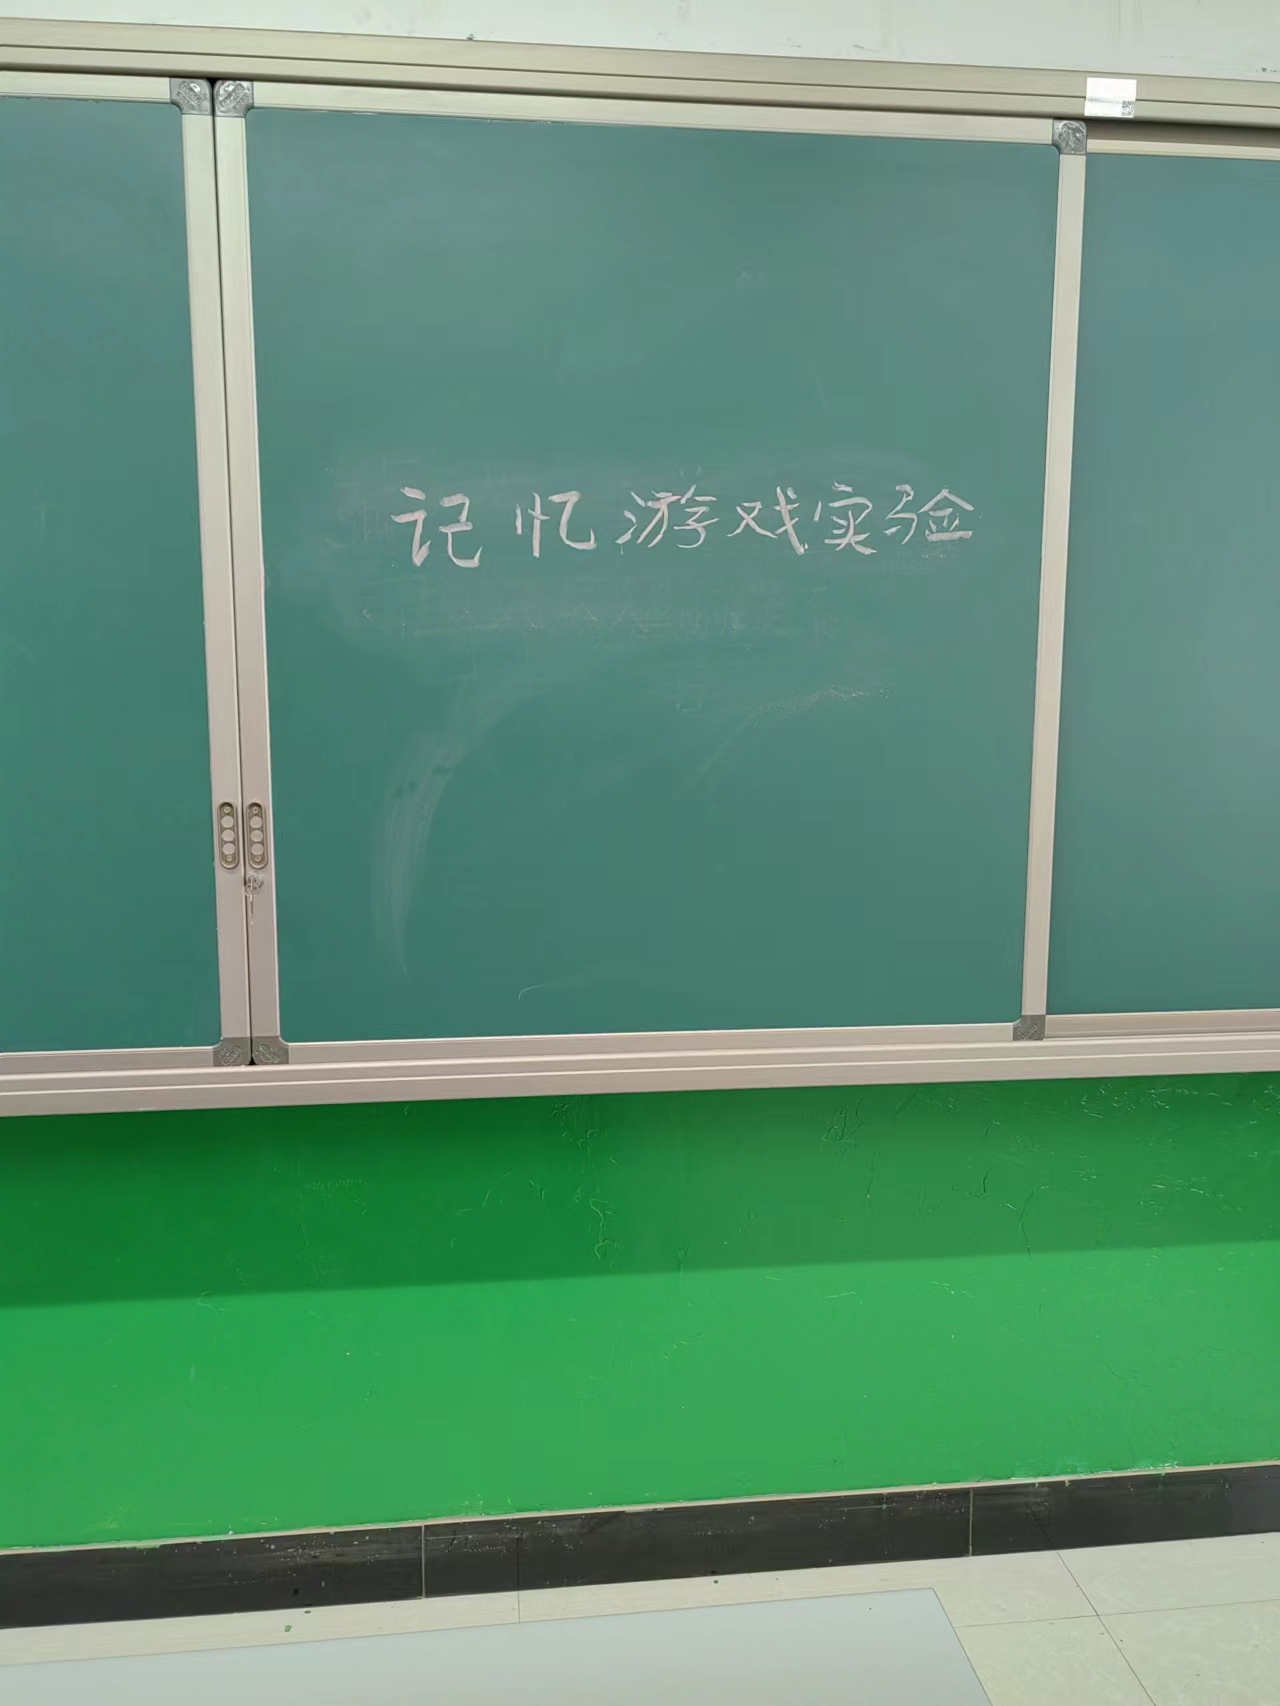 记忆游戏实验